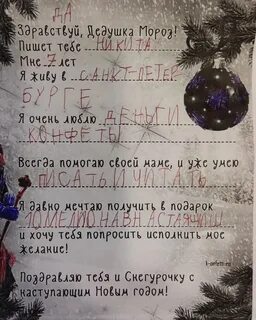 ДА
Здравствуй, Дедушка Мороз!
Пишет тебе НИКИТА
Мне 7 лет
Я живу в САНКТ-ПЕТЕР
БУРГЕ
Я очень люблю ДЕНЬГИ
КОНФЕТЫ
Всегда помогаю своей маме, и уже умею
ПИСАТЬ И ЧИТАТЬ
Я давно мечтаю получить в подарок
10 МЕЛИОНАВ НАСТАЯЧИИ
и хочу тебя попросить исполнить мое
желание!
Поздравляю тебя и Снегурочку с
наступающим Новым годом!